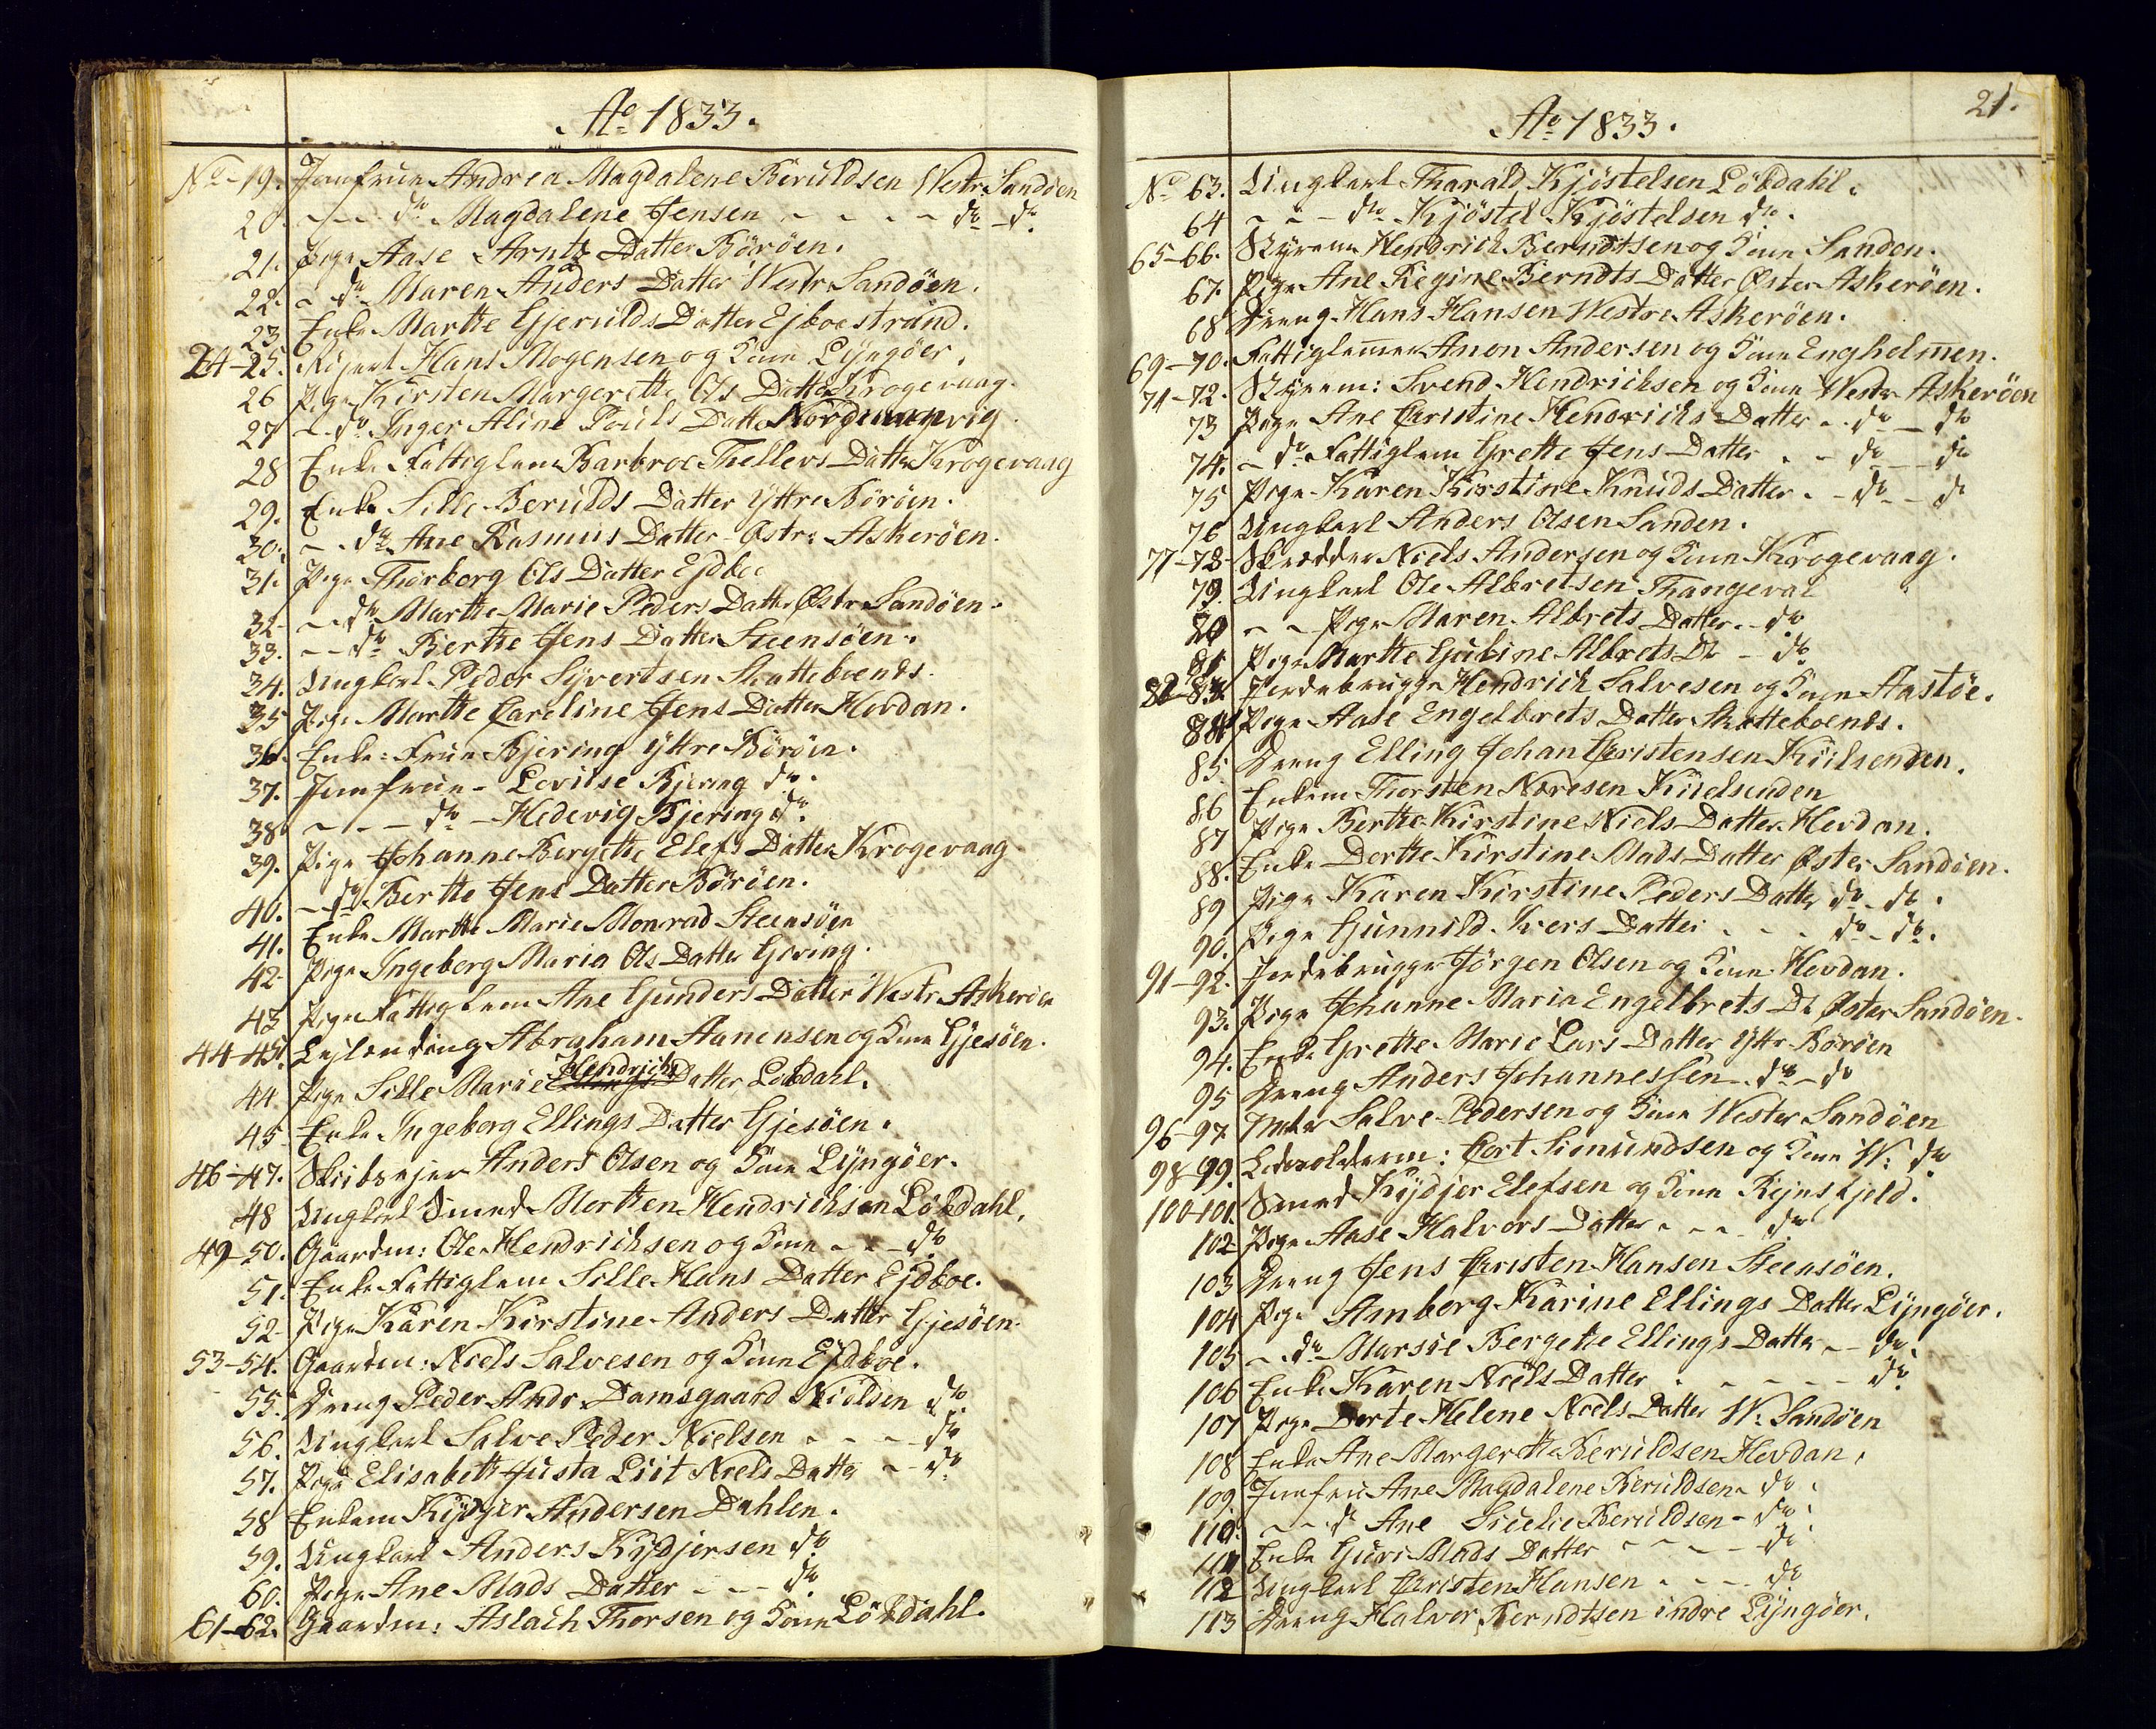 Ao 1833.
No 19. Jomfrue Andrea Magdalene Beruldsen Westr. Sandöen
20. - - do Magdalene Jensen - - - - do - do
21. Pige Aase Arntz Datter Böröen.
22. - do Maren Anders Datter Westr Sandöen.
23. Enke Marthe Gjerulds Datter Ejboestrand.
24-25. Hans Mogensen og Kone Lÿngöer.
26 Pige Kirsten Margerethe Ols Datter Krogevaag.
27 - do Inger Aline Pouls Datter
28 Enke Fattiglem Barbroe Thellevs Datter Krogevaag
29. Enke Sille Berulds Datter Ÿttre Böröen.
30. - do Ane Rasmus Datter Østre Askeröen.
31. Pige Thorborg Ols Datter Ejdboe
32. - - do Marthe Marie Peders Datter Østr Sandöen.
33. - - do Berthe Jens Datter Steensöen.
34. Ungkarl Peder Sÿvertsen Skatteboenes.
35 Pige Marthe Caroline Jens Datter Hovdan.
36. Enke: Frue Bjering Ÿttre Böröen.
37. Jomfrue - Lovise Bjering do.
38 - - - do - Hedevig Bjering do.
39. Pige Johanne Bergethe Elefs Datter Krogevaag
40. - do Berthe Jens Datter Böröen.
41. Enke Marthe Marie Monrad Steensöen
42. Pige Ingeborg Maria Ols Datter Gjeving.
43 Pige Fattiglem Ane Gunders Datter Westr. Askeröen
44-45. Lejlending Abraham Aanensen og Kone Gjesöen.
44 Pige Sille Marie Hendrichs Datter Lökdahl.
45 Enke Ingeborg Ellings Datter Gjesöen.
46-47. Skibsejer Anders Olsen og Kone Lÿngöer.
48 Ungkarl Smed Morthen Hendrichsen Lökdahl.
49-50. Gaardm: Ole Hendrichsen og Kone - - - do
51. Enke Fattiglem Sille Hans Datter Ejdboe.
52. Pige Karen Kirstine Anders Datter Gjesöen.
53-54. Gaardm: Niels Salvesen og Kone Ejdboe.
55. Dreng Peder Andr. Damsgaard Nielsen do.
56. Ungkarl Salve Peder Nielsen - - - do
57. Pige Elisabeth Justa Liit Niels Datter - - do
58 Enkem Kÿdjer Andersen Dahlen.
59. Ungkarl Anders Kÿdjersen do
60. Pige Ane Mads Datter - - - do.
61-62. Gaardm: Aslach Thorsen og Kone Lökdahl.
21.
Ao 1833.
No 63. Ungkarl Tharald Kjöstelsen Lökdahl.
64 - - - do Kjöstel Kjöstelsen do.
65-66. Hendrich Berndtsen og Kone Sanden.
67. Pige Ane Regine Berndts Datter Øster Askeröen.
68 Dreng Hans Hansen Westre Askeröen.
69-70. Fattiglemmer Anon Andersen og Kone Engholmen.
71-72. Svend Hendrichsen og Kone Westr Askeröen
73 Pige Ane Christine Hendrichs Datter - do - do
74. - do Fattiglem Grethe Jens Datter - - do - do
75 Pige Karen Kirstine Knuds Datter - do - do
76 Ungkarl Anders Olsen Sanden.
77-78 Skrædder Niels Andersen og Kone Krogevaag.
79. Ungkarl Ole Albretsen Thangeval
80 - - Pige Maren Albrets Datter - do
81 Pige Marthe Gubine Albrets Dt - do
82-83 Jordebrugger Hendrich Salvesen og Kone Aastöe.
84 Pige Aase Engelbrets Datter Skatteboenes.
85. Dreng Elling Johan Christensen Kiilsenden.
86 Enkem Thorsten Nœresen Kiilsenden
87 Pige Berthe Kirstine Niels Datter Hovdan.
88. Enke Dorthe Kirstine Mads Datter Øster Sandöen.
89 Pige Karen Kirstine Peders Datter do - do.
90. Pige Gunnild Ivers Datter - - - do - do.
91-92. Jordebrugger Jörgen Olsen og Kone Hovdan.
93. Pige Johanne Maria Engelbrets Dt Øster Sandöen.
94. Enke Grethe Marie Lars Datter Ÿttr Böröen
95 Dreng Anders Johannessen - do - do
96-97 Salve Pedersen og Kone Wester Sandöen
98-99. Cort Simundsen og Kone W: do
100-101. Smed Kÿdjer Elefsen og Kone Rejnsfjeld.
102 Pige Aase Halvors Datter - - - do
103 Dreng Jens Christen Hansen Steensöen.
104 Pige Amborg Karine Ellings Datter Lÿngöer.
105 - do Marsie Bergethe Ellings Datter - - do.
106 Enke Karen Niels Datter - - - - do.
107 Pige Dorte Helene Niels Datter W. Sandöen
108 Enke Ane Margerethe Beruldsen Hovdan.
109 Jomfru Ane Magdalene Beruldsen do.
110. - - do Ane Beruldsen - do.
111 Enke Guri Mads Datter - - - - do
112 Ungkarl Christen Hansen - - - do
113 Dreng Halvor Berndtsen indre Lÿngöer.